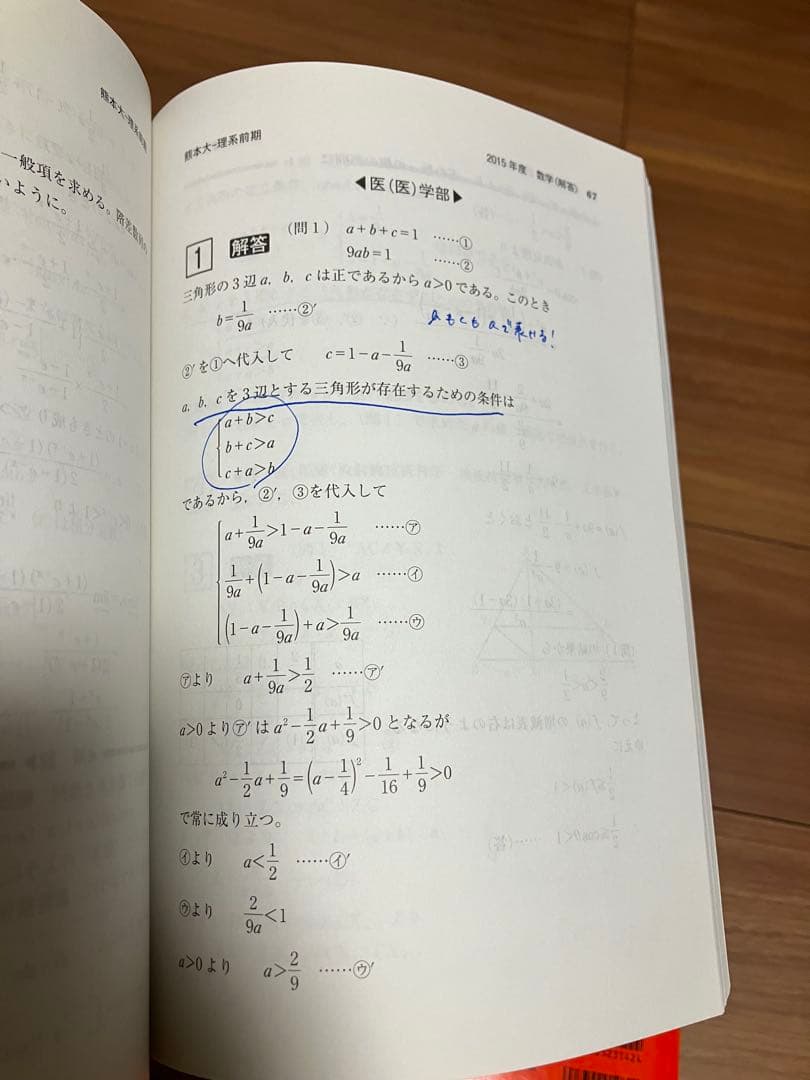 熊本大-理系前期
一般項を求める。階差数列の
いように。
熊本大-理系前期
2015年度 数学(解答) 67
◀医(医)学部▶
1 解答 (問1) a+b+c=1 ……①
9ab=1 ……②
三角形の3辺a, b, cは正であるからa>0である。このとき
b=1/(9a) ……②′
bもcもaで表せる!
②′を①へ代入して c=1-a-1/(9a) ……③
a, b, cを3辺とする三角形が存在するための条件は
a+b>c
b+c>a
c+a>b
であるから, ②′, ③を代入して
a+1/(9a)>1-a-1/(9a) ……㋐
1/(9a)+(1-a-1/(9a))>a ……㋑
(1-a-1/(9a))+a>1/(9a) ……㋒
㋐より a+1/(9a)>1/2 ……㋐′
a>0より㋐′はa²-1/2a+1/9>0となるが
a²-1/2a+1/9=(a-1/4)²-1/16+1/9>0
で常に成り立つ。
㋑より a<1/2 ……㋑′
㋒より 2/(9a)<1
a>0より a>2/9 ……㋒′